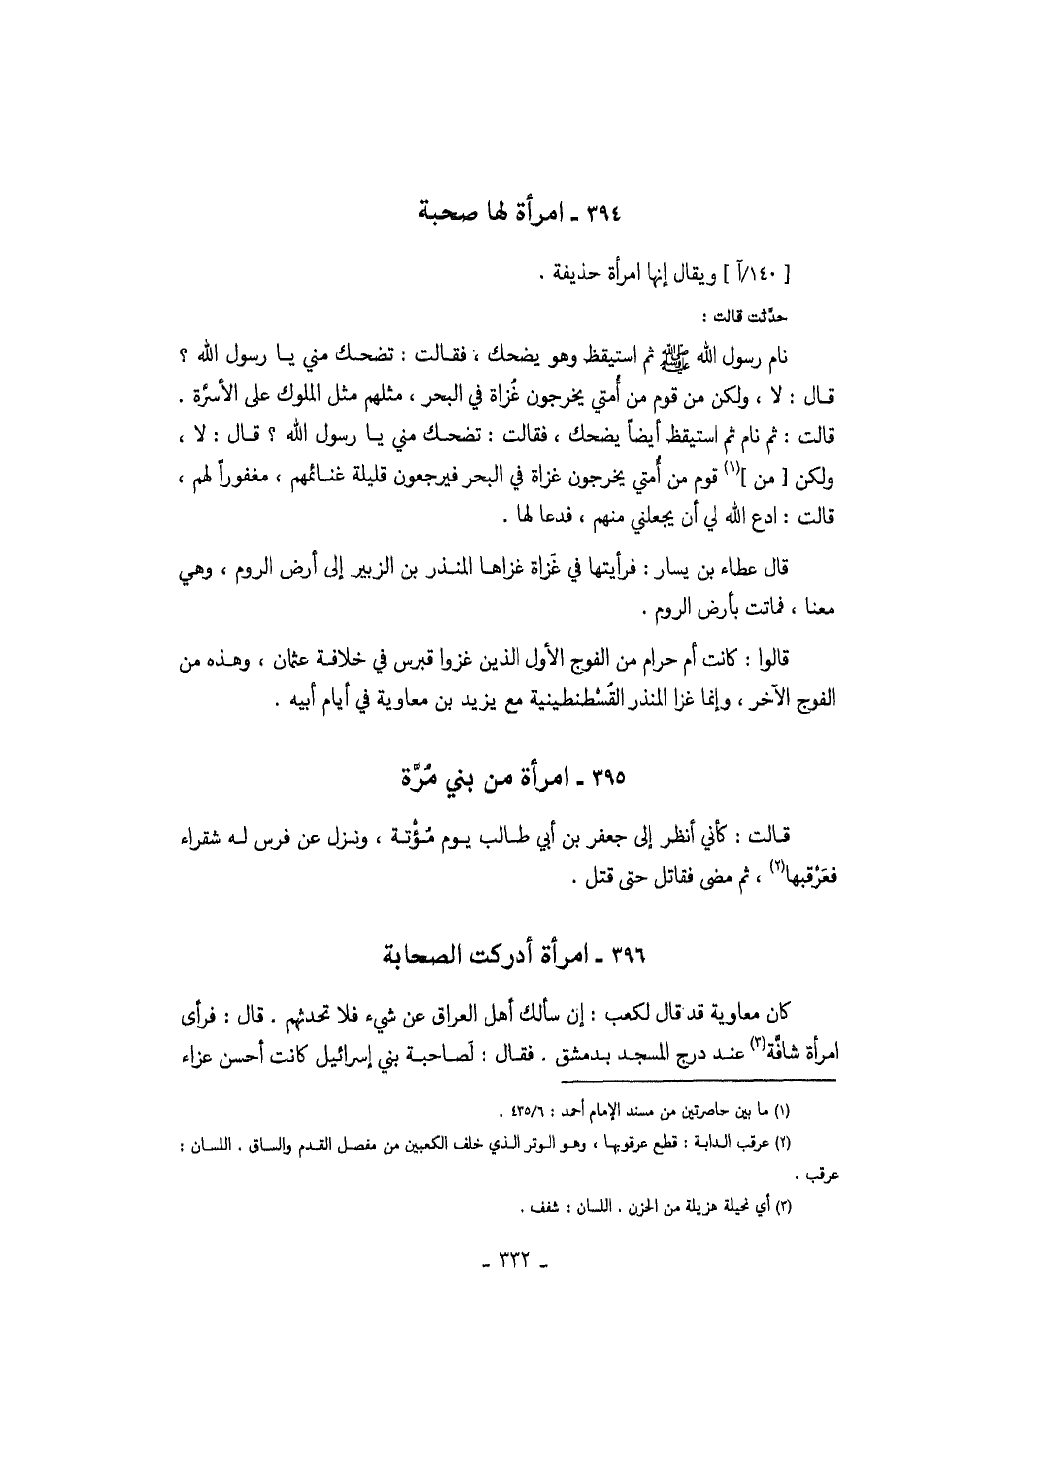 ٣٩٤ ـ امرأة لها صحبة
[ ١٤٠/آ ] ويقال إنها امرأة حذيفة .
حدَّثت قالت :
نام رسول الله ﷺ ثم استيقظ وهو يضحك ، فقالت : تضحك مني يا رسول الله ؟
قال : لا ، ولكن من قوم من أُمتي يخرجون غُزاة في البحر ، مثلهم مثل الملوك على الأسرَّة .
قالت : ثم نام ثم استيقظ أيضاً يضحك ، فقالت : تضحك مني يا رسول الله ؟ قال : لا ،
ولكن [ من ](١) قوم من أُمتي يخرجون غزاة في البحر فيرجعون قليلة غنائمهم ، مغفوراً لهم ،
قالت : ادع الله لي أن يجعلني منهم ، فدعا لها .
قال عطاء بن يسار : فرأيتها في غَزاة غزاها المنذر بن الزبير إلى أرض الروم ، وهي
معنا ، فماتت بأرض الروم .
قالوا : كانت أم حرام من الفوج الأول الذين غزوا قبرس في خلافة عثمان ، وهذه من
الفوج الآخر ، وإنما غزا المنذر القُسْطنطينية مع يزيد بن معاوية في أيام أبيه .
٣٩٥ ـ امرأة من بني مُرَّة
قالت : كأني أنظر إلى جعفر بن أبي طالب يوم مُؤْتة ، ونزل عن فرس له شقراء
فعَرْقبها(٢) ، ثم مضى فقاتل حتى قتل .
٣٩٦ ـ امرأة أدركت الصحابة
كان معاوية قد قال لكعب : إن سألك أهل العراق عن شيء فلا تحدثهم . قال : فرأى
امرأة شافَّة(٣) عند درج المسجد بدمشق . فقال : لَصاحبة بني إسرائيل كانت أحسن عزاء
(١) ما بين حاصرتين من مسند الإمام أحمد : ٤٣٥/٦ .
(٢) عرقب الدابة : قطع عرقوبها ، وهو الوتر الذي خلف الكعبين من مفصل القدم والساق . اللسان :
عرقب .
(٣) أي نحيلة هزيلة من الحزن . اللسان : شفف .
ـ ٣٣٢ ـ